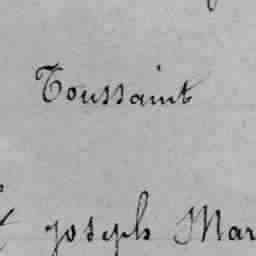 Toussaint
Joseph Mar